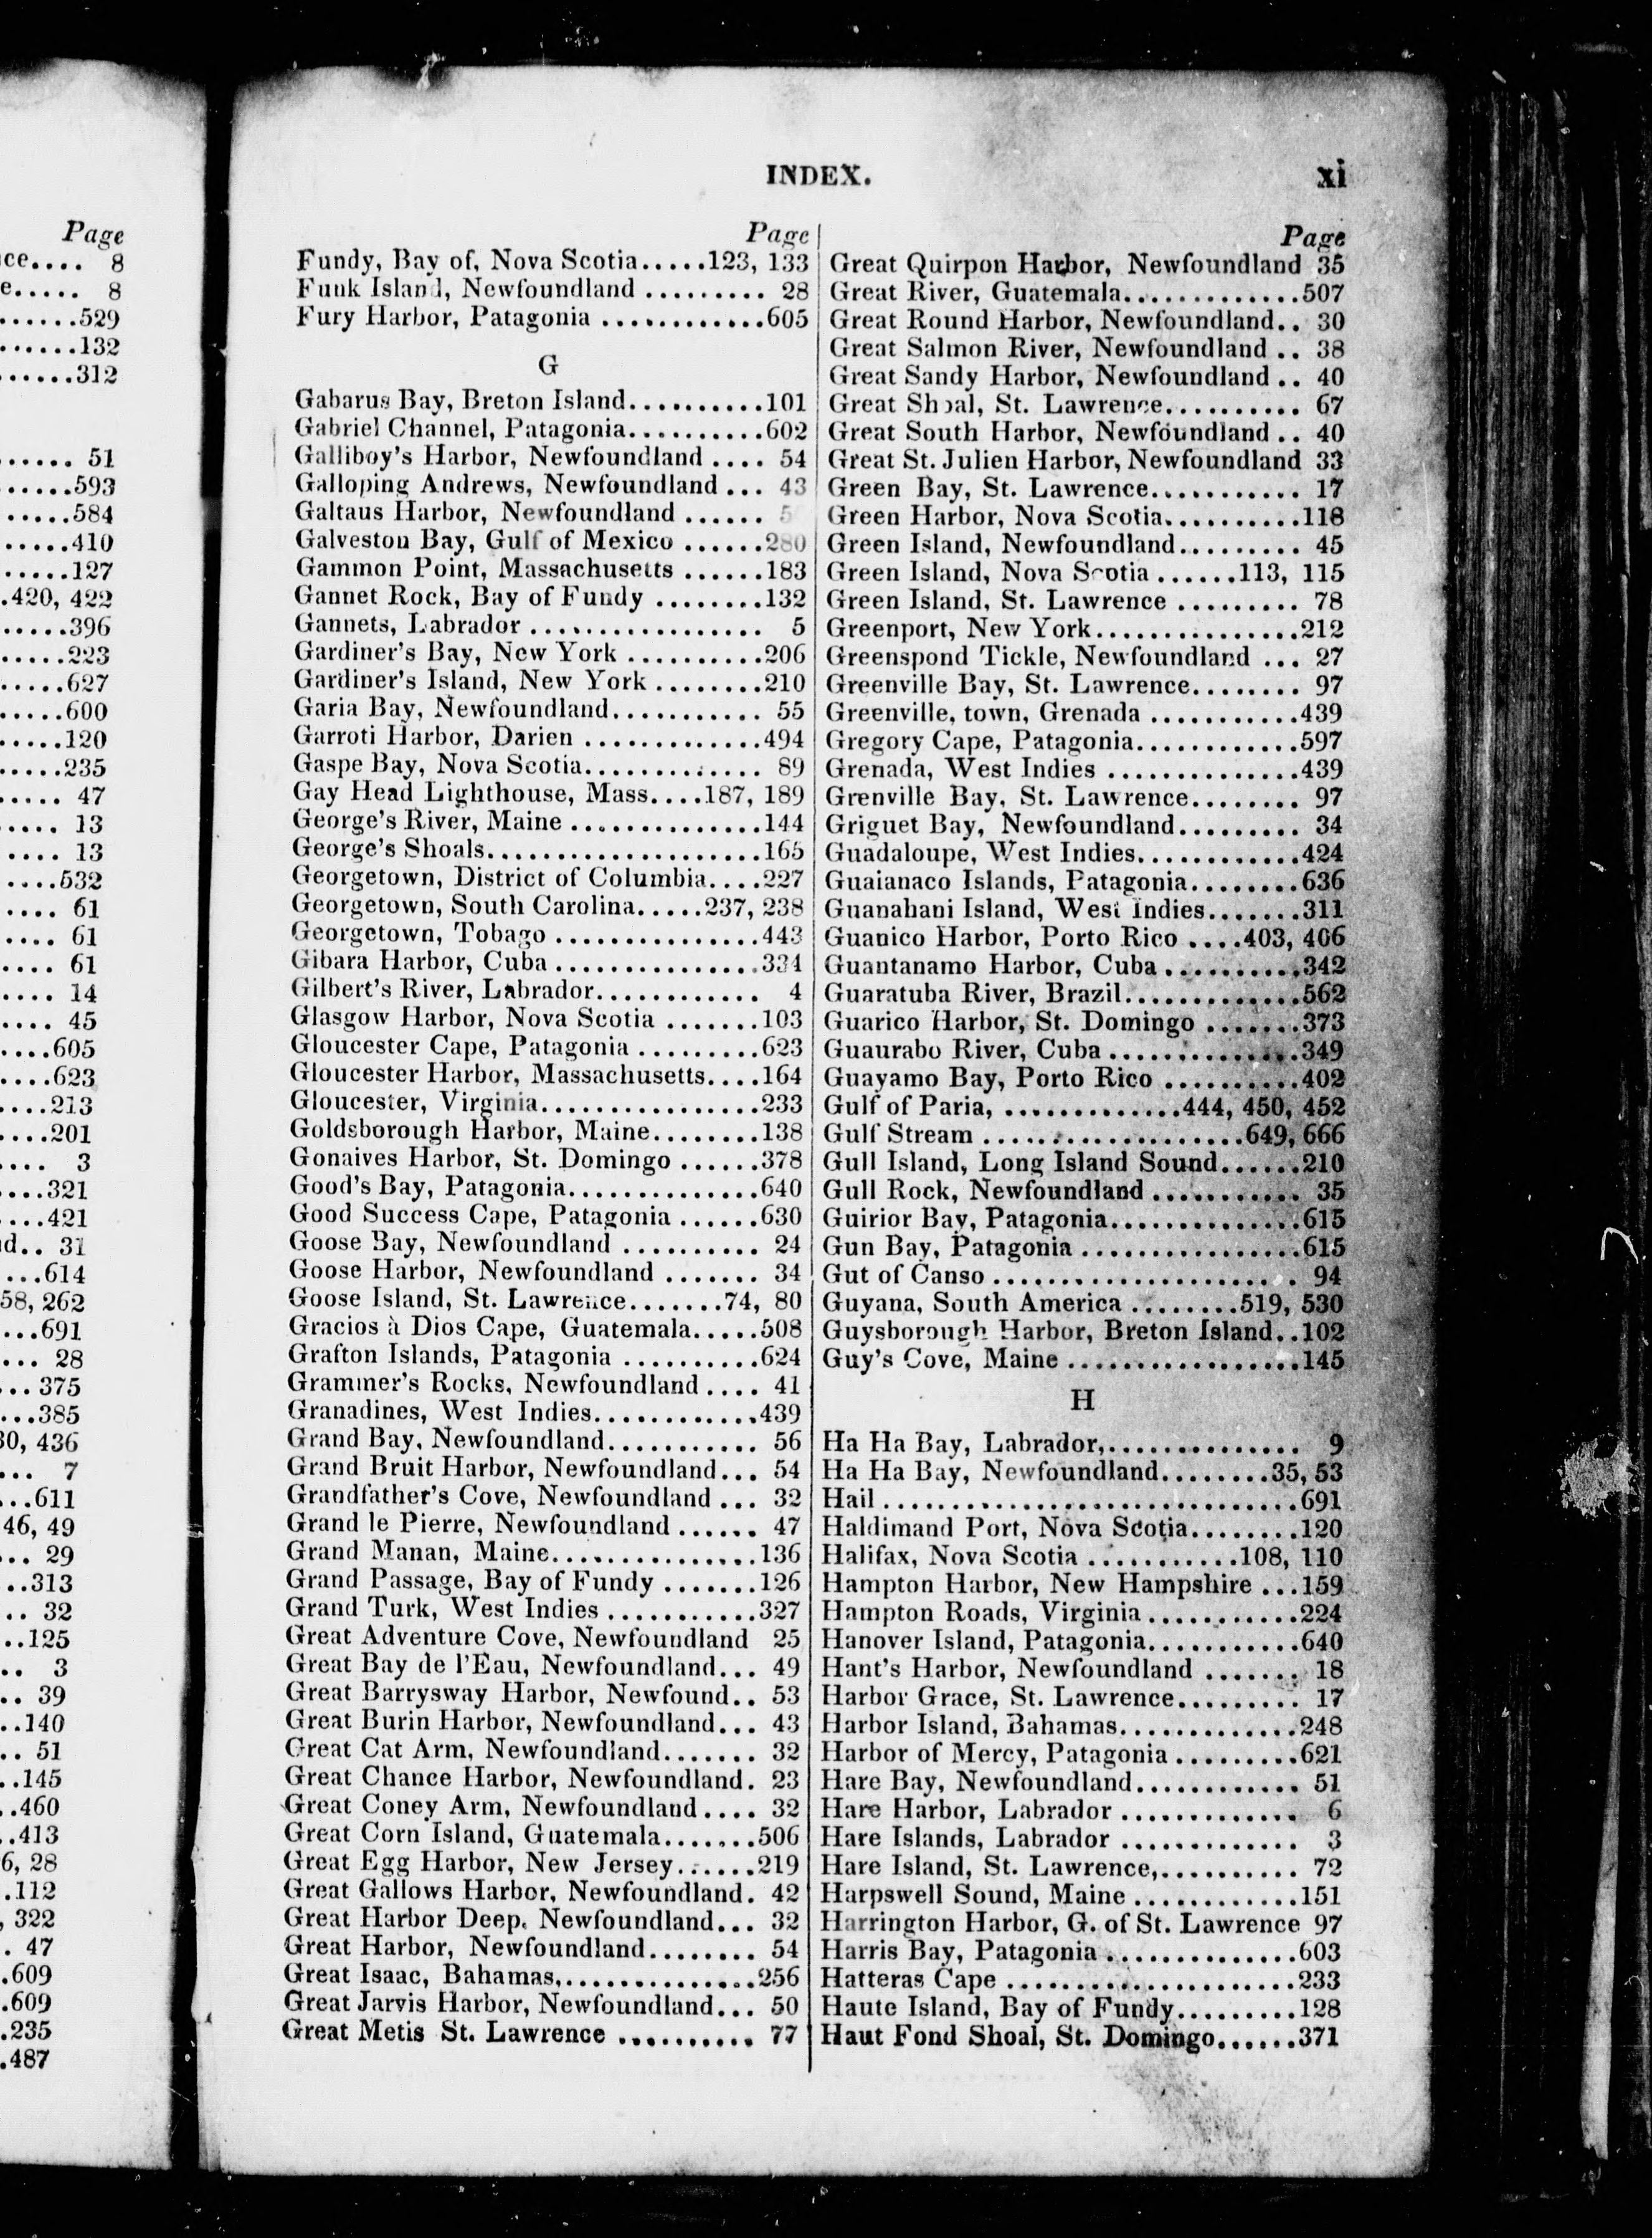 Page
8
8
529
132
312
51
593
584
410
127
420, 422
396
223
627
600
120
235
47
13
13
532
61
61
61
14
45
605
623
213
201
3
321
421
31
614
58, 262
691
28
375
385
30, 436
7
611
46, 49
29
313
32
125
3
39
140
51
145
460
413
6, 28
112
, 322
47
609
609
235
487
INDEX. xi
Page
Fundy, Bay of, Nova Scotia.....123, 133
Funk Island, Newfoundland ......... 28
Fury Harbor, Patagonia ............605
G
Gabarus Bay, Breton Island..........101
Gabriel Channel, Patagonia..........602
Galliboy's Harbor, Newfoundland .... 54
Galloping Andrews, Newfoundland ... 43
Galtaus Harbor, Newfoundland ......
Galveston Bay, Gulf of Mexico ......280
Gammon Point, Massachusetts ......183
Gannet Rock, Bay of Fundy ........132
Gannets, Labrador ................. 5
Gardiner's Bay, New York ..........206
Gardiner's Island, New York ........210
Garia Bay, Newfoundland........... 55
Garroti Harbor, Darien .............494
Gaspe Bay, Nova Scotia............. 89
Gay Head Lighthouse, Mass....187, 189
George's River, Maine ..............144
George's Shoals.....................165
Georgetown, District of Columbia....227
Georgetown, South Carolina.....237, 238
Georgetown, Tobago ...............443
Gibara Harbor, Cuba ...............334
Gilbert's River, Labrador............ 4
Glasgow Harbor, Nova Scotia .......103
Gloucester Cape, Patagonia .........623
Gloucester Harbor, Massachusetts....164
Gloucester, Virginia................233
Goldsborough Harbor, Maine........138
Gonaives Harbor, St. Domingo ......378
Good's Bay, Patagonia..............640
Good Success Cape, Patagonia ......630
Goose Bay, Newfoundland .......... 24
Goose Harbor, Newfoundland ....... 34
Goose Island, St. Lawrence.......74, 80
Gracios à Dios Cape, Guatemala.....508
Grafton Islands, Patagonia ..........624
Grammer's Rocks, Newfoundland .... 41
Granadines, West Indies............439
Grand Bay, Newfoundland........... 56
Grand Bruit Harbor, Newfoundland... 54
Grandfather's Cove, Newfoundland ... 32
Grand le Pierre, Newfoundland ...... 47
Grand Manan, Maine...............136
Grand Passage, Bay of Fundy .......126
Grand Turk, West Indies ...........327
Great Adventure Cove, Newfoundland 25
Great Bay de l'Eau, Newfoundland... 49
Great Barrysway Harbor, Newfound.. 53
Great Burin Harbor, Newfoundland... 43
Great Cat Arm, Newfoundland....... 32
Great Chance Harbor, Newfoundland. 23
Great Coney Arm, Newfoundland .... 32
Great Corn Island, Guatemala.......506
Great Egg Harbor, New Jersey......219
Great Gallows Harbor, Newfoundland. 42
Great Harbor Deep, Newfoundland... 32
Great Harbor, Newfoundland........ 54
Great Isaac, Bahamas,..............256
Great Jarvis Harbor, Newfoundland... 50
Great Metis St. Lawrence .......... 77
Page
Great Quirpon Harbor, Newfoundland 35
Great River, Guatemala.............507
Great Round Harbor, Newfoundland.. 30
Great Salmon River, Newfoundland .. 38
Great Sandy Harbor, Newfoundland .. 40
Great Shoal, St. Lawrence.......... 67
Great South Harbor, Newfoundland .. 40
Great St. Julien Harbor, Newfoundland 33
Green Bay, St. Lawrence........... 17
Green Harbor, Nova Scotia..........118
Green Island, Newfoundland......... 45
Green Island, Nova Scotia ......113, 115
Green Island, St. Lawrence ......... 78
Greenport, New York...............212
Greenspond Tickle, Newfoundland ... 27
Greenville Bay, St. Lawrence........ 97
Greenville, town, Grenada ...........439
Gregory Cape, Patagonia............597
Grenada, West Indies ..............439
Grenville Bay, St. Lawrence........ 97
Griguet Bay, Newfoundland......... 34
Guadaloupe, West Indies............424
Guaianaco Islands, Patagonia........636
Guanahani Island, West Indies.......311
Guanico Harbor, Porto Rico ....403, 406
Guantanamo Harbor, Cuba ..........342
Guaratuba River, Brazil.............562
Guarico Harbor, St. Domingo .......373
Guaurabo River, Cuba ..............349
Guayamo Bay, Porto Rico ..........402
Gulf of Paria, .............444, 450, 452
Gulf Stream ....................649, 666
Gull Island, Long Island Sound......210
Gull Rock, Newfoundland ........... 35
Guirior Bay, Patagonia..............615
Gun Bay, Patagonia ................615
Gut of Canso ....................... 94
Guyana, South America ........519, 530
Guysborough Harbor, Breton Island..102
Guy's Cove, Maine .................145
H
Ha Ha Bay, Labrador,.............. 9
Ha Ha Bay, Newfoundland........35, 53
Hail ...............................691
Haldimand Port, Nova Scotia........120
Halifax, Nova Scotia ...........108, 110
Hampton Harbor, New Hampshire ...159
Hampton Roads, Virginia ...........224
Hanover Island, Patagonia...........640
Hant's Harbor, Newfoundland ....... 18
Harbor Grace, St. Lawrence......... 17
Harbor Island, Bahamas.............248
Harbor of Mercy, Patagonia .........621
Hare Bay, Newfoundland............ 51
Hare Harbor, Labrador ............. 6
Hare Islands, Labrador ............. 3
Hare Island, St. Lawrence,.......... 72
Harpswell Sound, Maine ............151
Harrington Harbor, G. of St. Lawrence 97
Harris Bay, Patagonia ..............603
Hatteras Cape .....................233
Haute Island, Bay of Fundy.........128
Haut Fond Shoal, St. Domingo......371